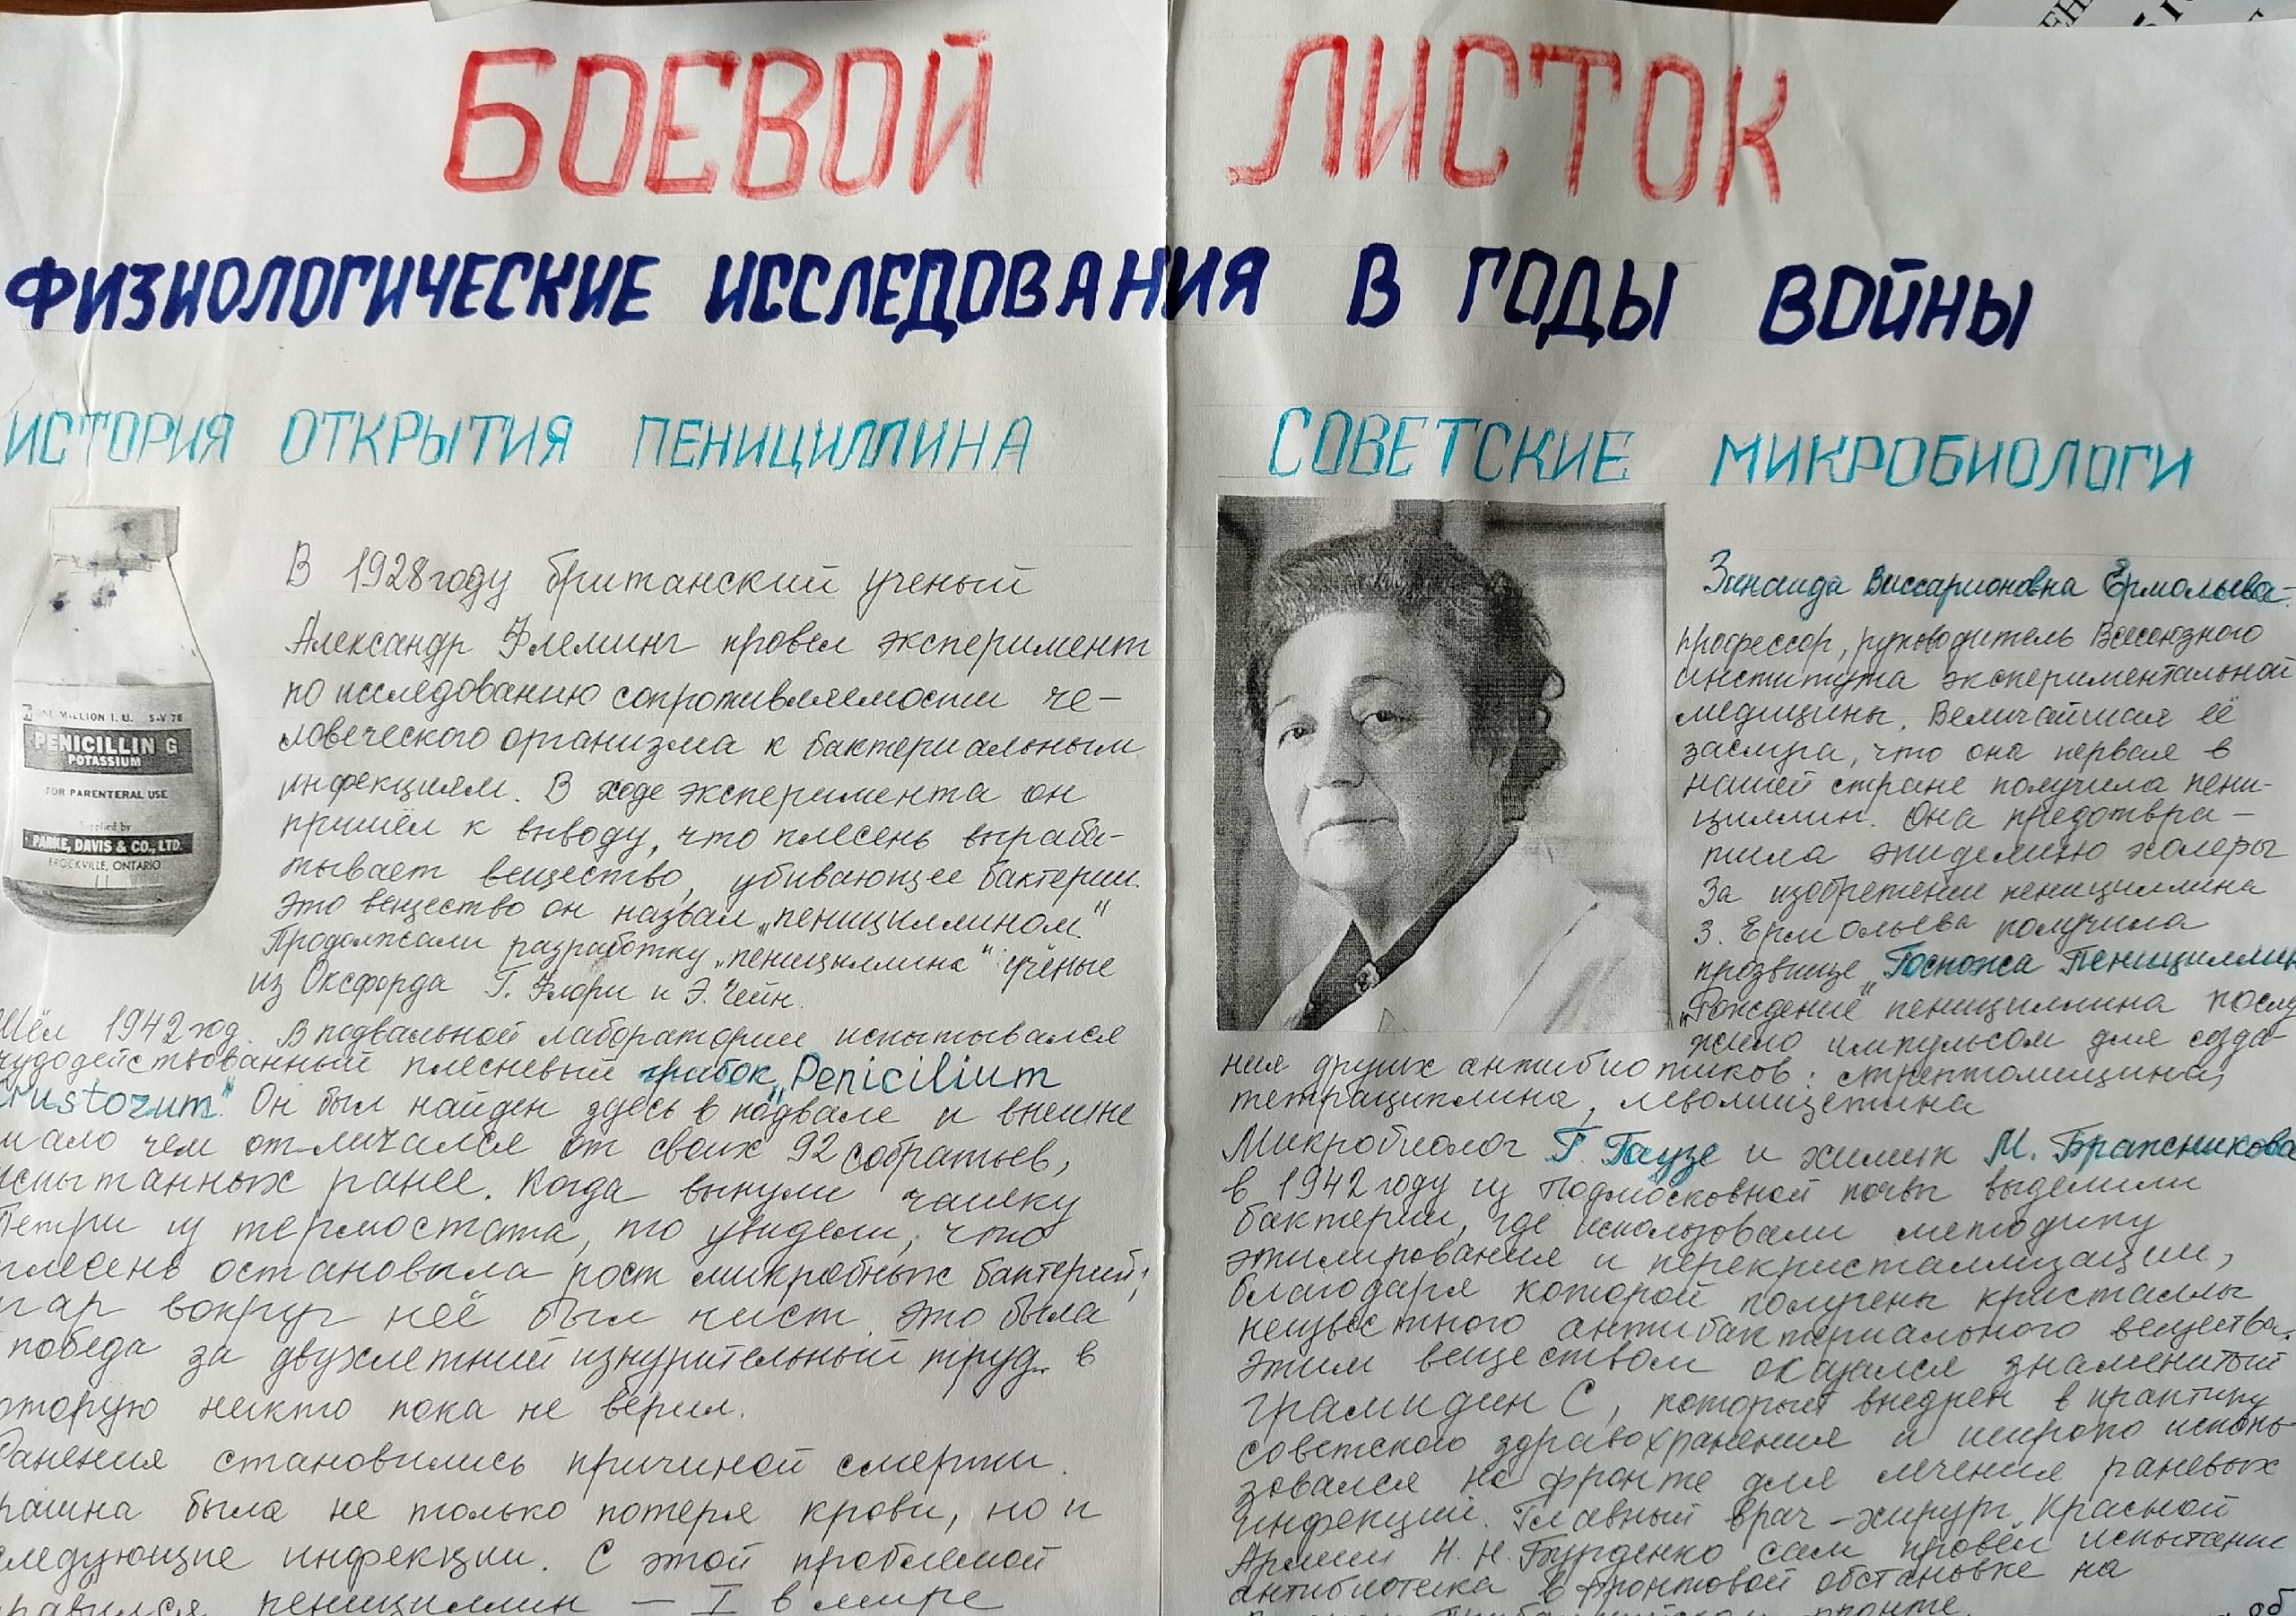 БОЕВОЙ ЛИСТОК
ФИЗИОЛОГИЧЕСКИЕ ИССЛЕДОВАНИЯ В ГОДЫ ВОЙНЫ
ИСТОРИЯ ОТКРЫТИЯ ПЕНИЦИЛЛИНА
ONE MILLION I.U. S-V 78
PENICILLIN G
POTASSIUM
FOR PARENTERAL USE
Supplied by
PARKE, DAVIS & CO., LTD.
BROCKVILLE, ONTARIO
В 1928 году британский ученый
Александр Флеминг провел эксперимент
по исследованию сопротивляемости че-
ловеческого организма к бактериальным
инфекциям. В ходе эксперимента он
пришёл к выводу, что плесень выраба-
тывает вещество, убивающее бактерии.
Это вещество он назвал „пенициллином"
Продолжали разработку „пенициллина" учёные
из Оксфорда Г. Флори и Э. Чейн.
Шёл 1942 год. В подвальной лаборатории испытывался
чудодействованный плесневый грибок „Penicilium
Crustozum". Он был найден здесь в подвале и внешне
мало чем отличался от своих 92 собратьев,
испытанных ранее. Когда вынули чашку
Петри из термостата, то увидели, что
плесень остановила рост микробных бактерий;
агар вокруг неё был чист. Это была
победа за двухлетний изнурительный труд. в
которую никто пока не верил.
Ранения становились причиной смерти.
рашна была не только потеря крови, но и
следующие инфекции. С этой проблемой
равился пенициллин — I в мире
СОВЕТСКИЕ МИКРОБИОЛОГИ
Зинаида Виссарионовна Ермольева-
профессор, руководитель Всесоюзного
института экспериментальной
медицины. Величайшая её
заслуга, что она первая в
нашей стране получила пени-
циллин. Она предотвра-
тила эпидемию холеры
За изобретение пенициллина
З. Ермольева получила
прозвище „Госпожа Пенициллин
„Рождение" пенициллина послу
жило импульсом для созда-
ния других антибиотиков: стрептомицина,
тетрациклина, левомицетина
Микробиолог Г. Гаузе и химик М. Бражникова
в 1942 году из подмосковной почвы выделили
бактерии, где использовали методику
этилирования и перекристаллизации,
благодаря которой получены кристаллы
неизвестного антибактериального вещества.
Этим веществом оказался знаменитый
грамидин С, который внедрен в практику
советского здравохранения и широко исполь-
зовался на фронте для лечения раневых
инфекций. Главный врач-хирург Красной
Армии Н. Н. Бурденко сам провёл испытание
антибиотика в фронтовой обстановке на
фронте.
об